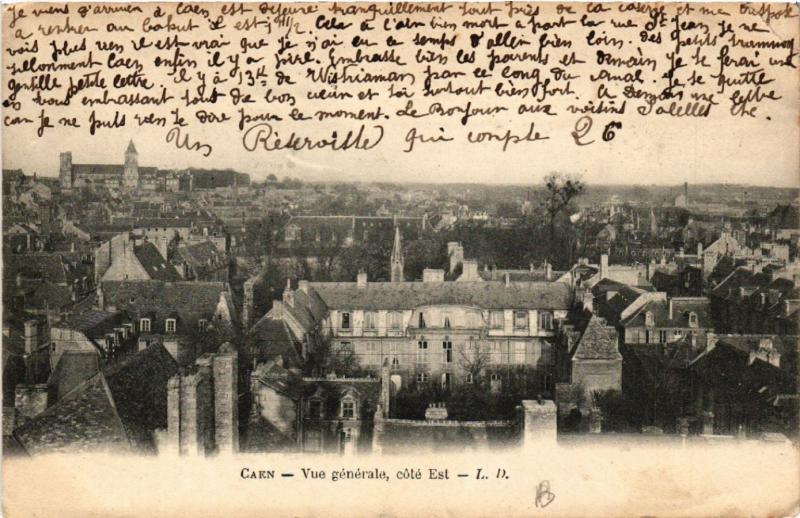 je viens d'arriver à Caen est Déjeuré tranquillement tout près de la caserne et me
a rentrer au bahut il est 1h 1/2. Cela à l'air bien mort a part la rue St Jean je ne
vois plus rien il est vrai que je n'ai eu ce temps d'aller bien loin. des petits tramway
sillonnent Caen enfin il y a pire. Embrasse bien les parents et demain je te ferai une
gentille petite lettre. il y à 13K de à par ce long du canal. je te quitte
en vous embrassant tous de bon cœur et toi surtout bien fort. a Demain une lettre
car je ne puis rien te dire pour le moment. Le Bonjour aux voisins etc.
Un Réserviste qui compte 26
CAEN — Vue générale, côté Est — L. D.